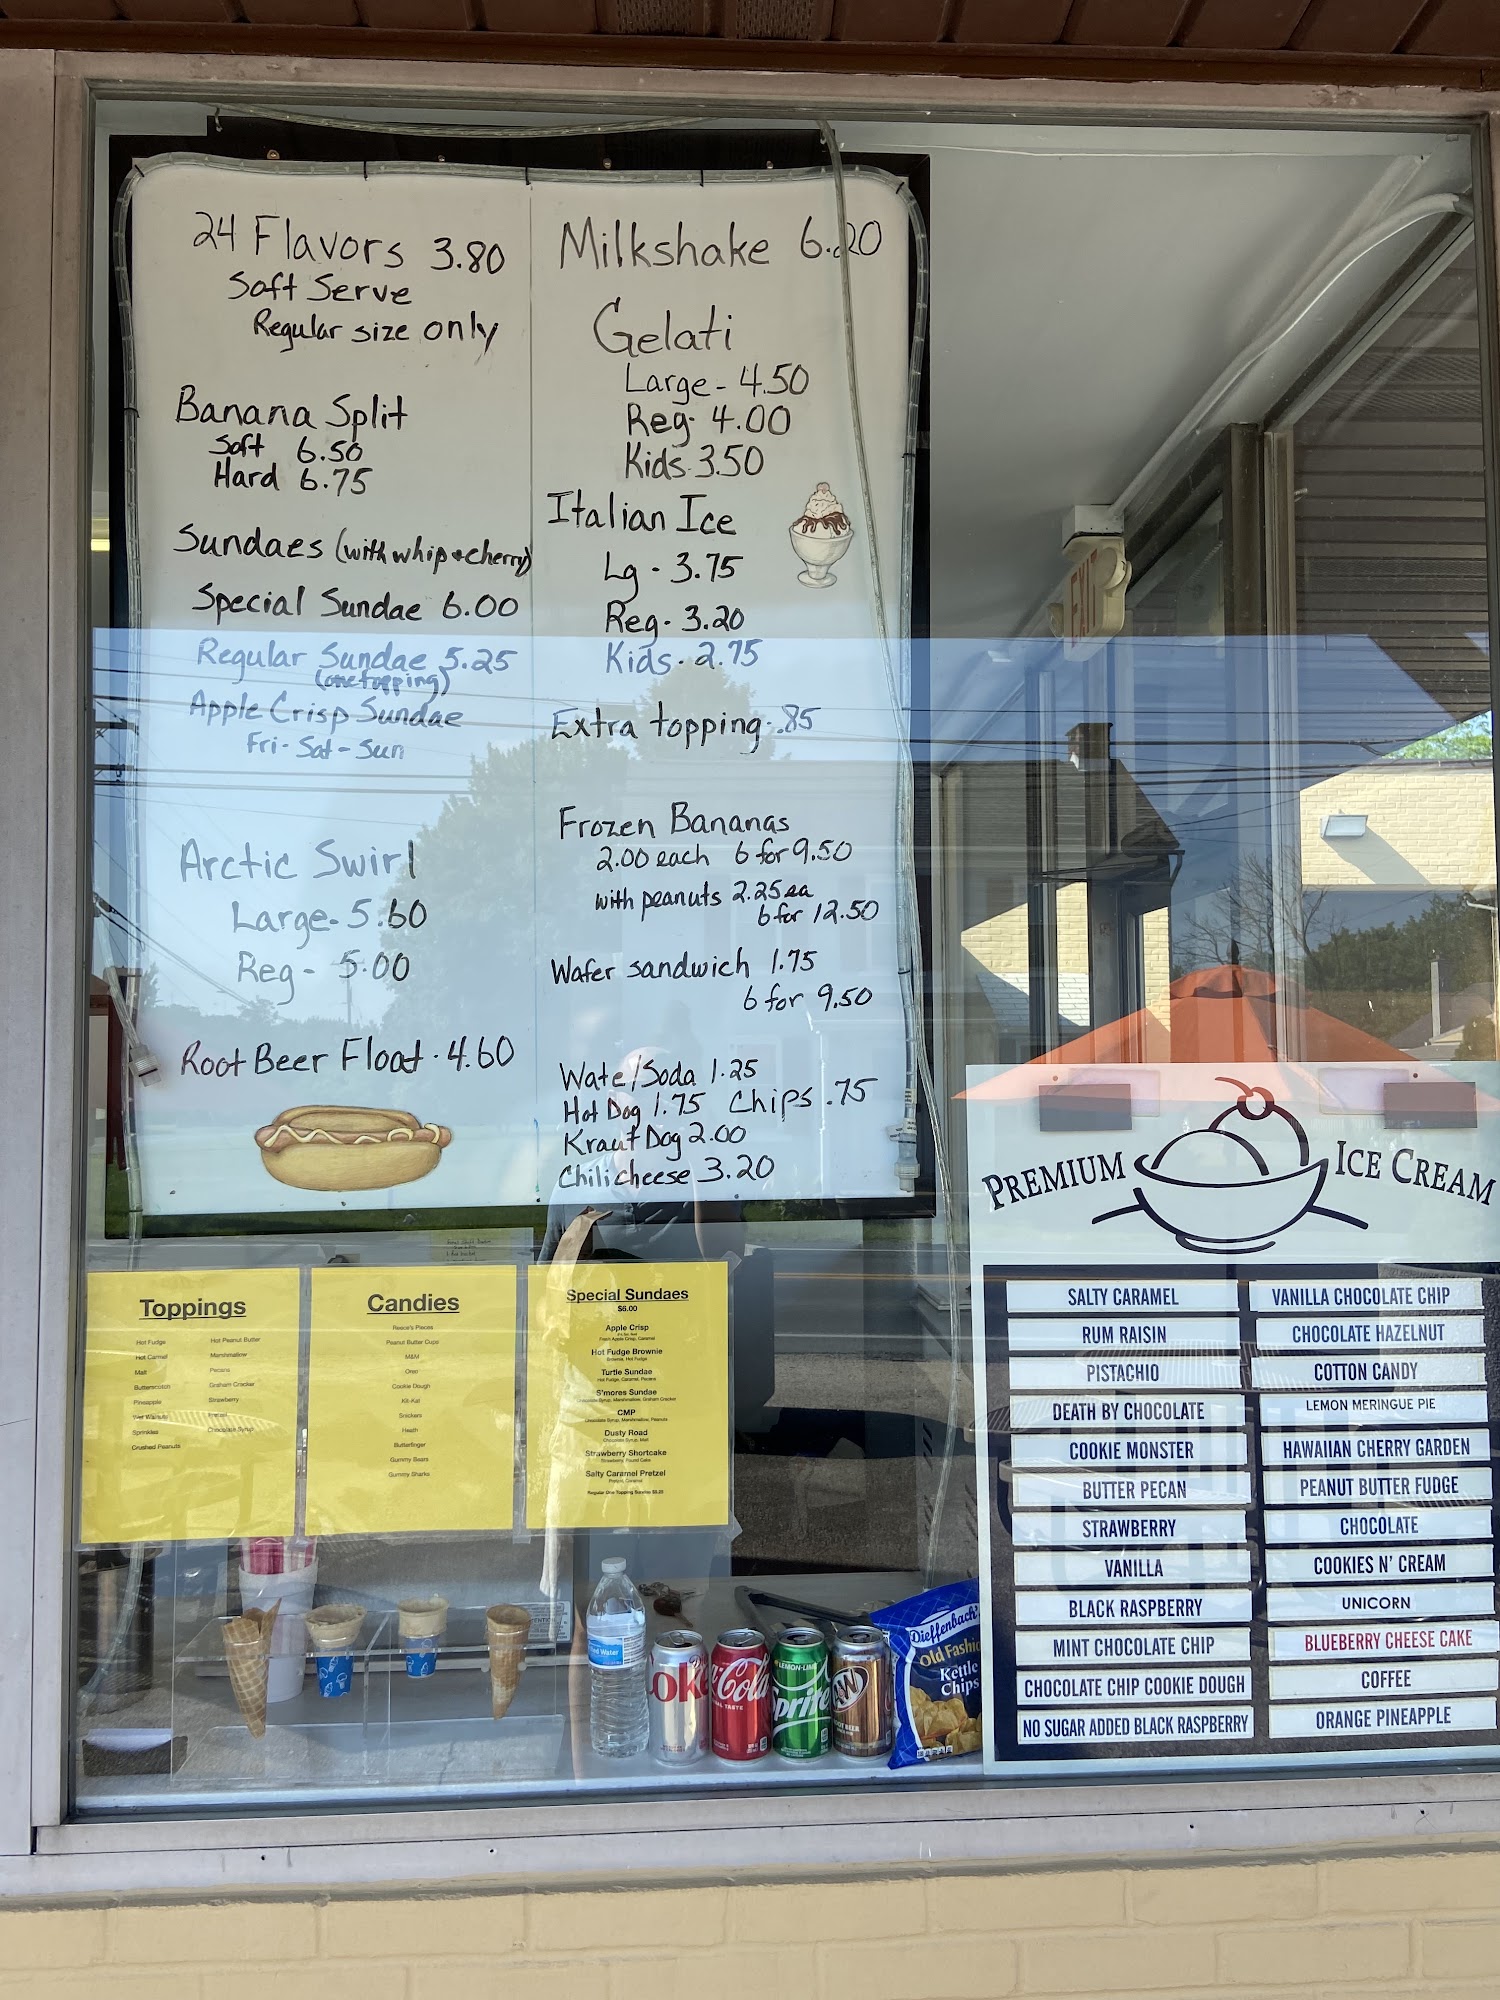 24 Flavors 3.80
Soft Serve
Regular size only
Banana Split
Soft 6.50
Hard 6.75
Sundaes (with whip & cherry)
Special Sundae 6.00
Regular Sundae 5.25
(one topping)
Apple Crisp Sundae
Fri - Sat - Sun
Arctic Swirl
Large - 5.60
Reg - 5.00
Root Beer Float - 4.60
Milkshake 6.20
Gelati
Large - 4.50
Reg - 4.00
Kids - 3.50
Italian Ice
Lg - 3.75
Reg - 3.20
Kids - 2.75
Extra topping - .85
Frozen Bananas
2.00 each 6 for 9.50
with peanuts 2.25 ea
6 for 12.50
Wafer sandwich 1.75
6 for 9.50
Wate/Soda 1.25
Hot Dog 1.75 Chips .75
Kraut Dog 2.00
Chili cheese 3.20
EXIT
Toppings
Hot Fudge
Hot Carmel
Malt
Butterscotch
Pineapple
Wet Walnuts
Sprinkles
Crushed Peanuts
Hot Peanut Butter
Marshmallow
Pecans
Graham Cracker
Strawberry
Chocolate Syrup
Candies
Reece's Pieces
Peanut Butter Cups
M&M
Oreo
Cookie Dough
Kit-Kat
Snickers
Heath
Butterfinger
Gummy Bears
Gummy Sharks
Special Sundaes
$6.00
Apple Crisp
Fresh Apple Crisp, Caramel
Hot Fudge Brownie
Brownie, Hot Fudge
Turtle Sundae
Hot Fudge, Caramel, Pecans
S'mores Sundae
Chocolate Syrup, Marshmallow, Graham Cracker
CMP
Chocolate Syrup, Marshmallow, Peanuts
Dusty Road
Chocolate Syrup, Malt
Strawberry Shortcake
Strawberry, Pound Cake
Salty Caramel Pretzel
Pretzel, Caramel
Regular One Topping Sundae $5.25
PREMIUM ICE CREAM
SALTY CARAMEL
RUM RAISIN
PISTACHIO
DEATH BY CHOCOLATE
COOKIE MONSTER
BUTTER PECAN
STRAWBERRY
VANILLA
BLACK RASPBERRY
MINT CHOCOLATE CHIP
CHOCOLATE CHIP COOKIE DOUGH
NO SUGAR ADDED BLACK RASPBERRY
VANILLA CHOCOLATE CHIP
CHOCOLATE HAZELNUT
COTTON CANDY
LEMON MERINGUE PIE
HAWAIIAN CHERRY GARDEN
PEANUT BUTTER FUDGE
CHOCOLATE
COOKIES N' CREAM
UNICORN
BLUEBERRY CHEESE CAKE
COFFEE
ORANGE PINEAPPLE
Water
Coke
Coca-Cola
LEMON-LIME
Sprite
A&W
ROOT BEER
Dieffenbach's
Old Fashio
Kettle
Chips